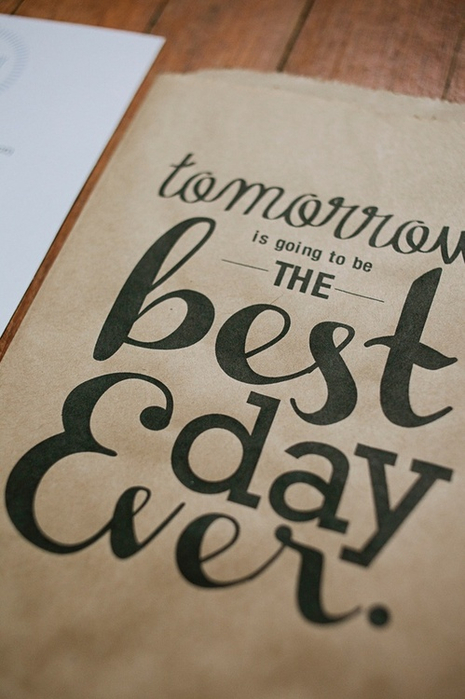 tomorrow
is going to be
THE
best
day
Ever.